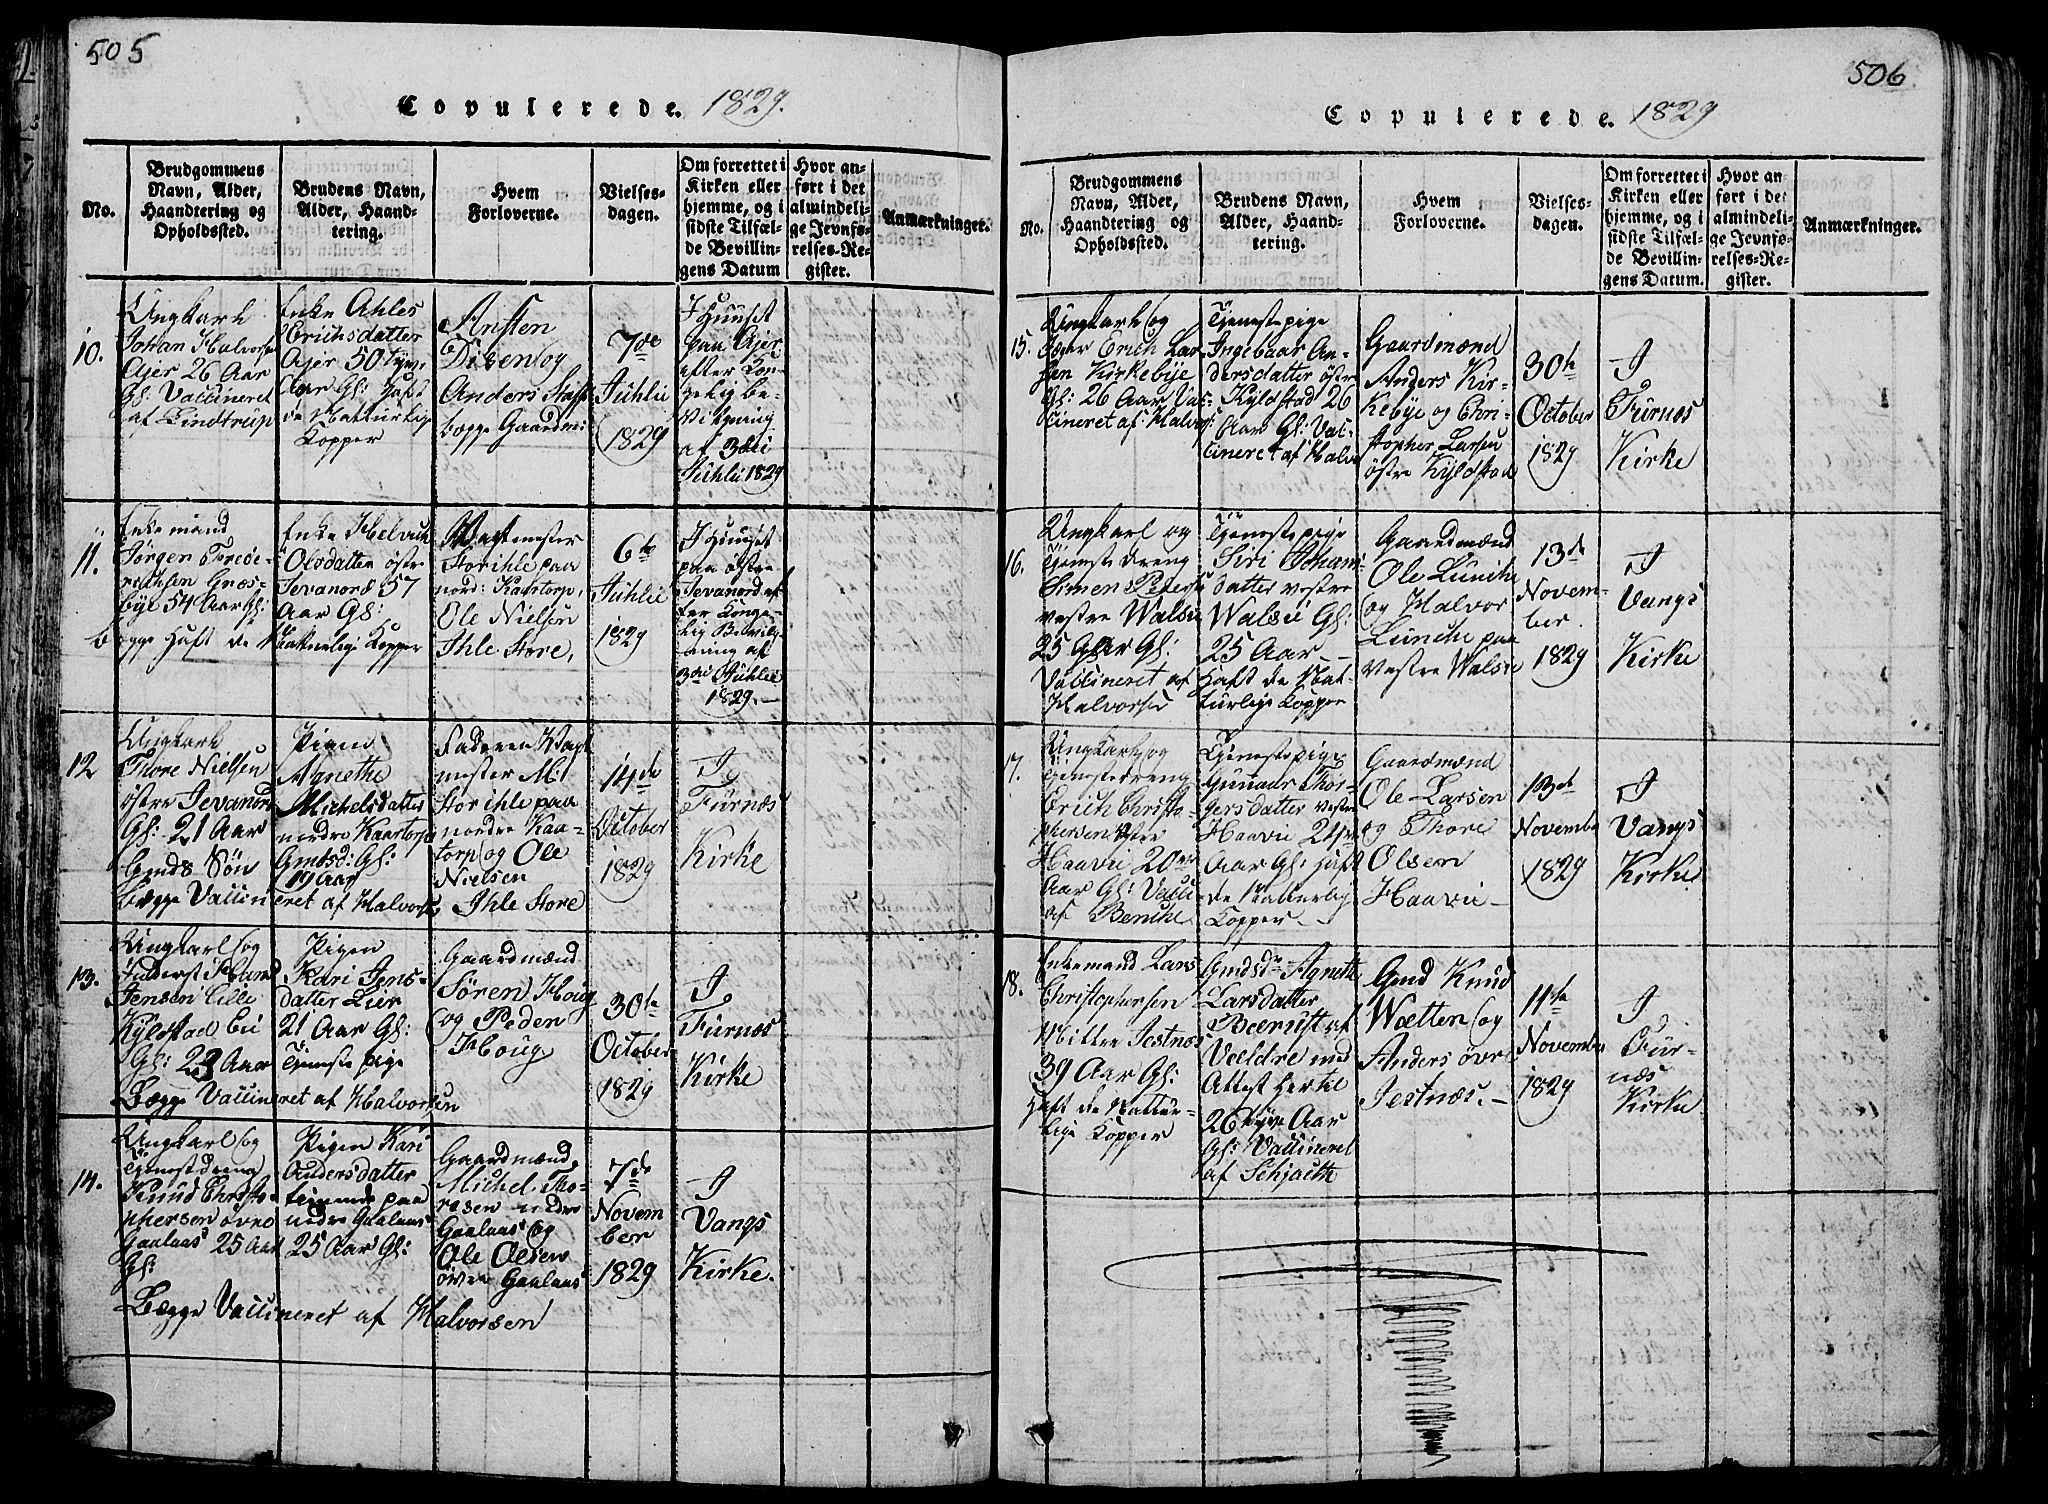 505
Copulerede. 1829.
No.
Brudgommens
Navn, Alder,
Haandtering og
Opholdssted.
Brudens Navn,
Alder, Haand-
tering.
Hvem
Forloverne.
Vielses-
dagen.
Om forrettet i
Kirken eller
hjemme, og i
sidste Tilfæl-
de Bevillin-
gens Datum
Hvor an-
ført i det
almindeli-
ge Jevnfø-
relses-Re-
gister.
Anmærkninger.
10.
Ungkarl
Johan Halvorsen
Ajer 26 Aar
Gl: Vaccineret
af Lindtrup
Enke Ahles
Erichsdatter
Ajer 50tyve
Aar Gl: haft
de Naturlige
Kopper
Ansten
Disen og
Anders
begge Gaardm:
7de
Juhlii
1829
I Huuset
paa Ajer
efter Kon-
gelig Be-
vilgning
af 3die
Juhlii 1829
11.
Enkemand
Jørgen Frede-
richsen Græs-
bye 54 Aar Gl:
begge haft de Naturlige Kopper
Enke Helvich
Olsdatter østre
Jevanord 57
Aar Gl:
Vagtmester
Storihle paa
nord: Kaatorp,
Ole Nielsen
Ihle Store,
6te
Juhlii
1829
I Huuset
paa østre
Jevanord ef-
ter Konge-
lig Bevilg-
ning af
3die Juhlii
1829.-
12
Ungkarl
Thore Nielsen
østre Jevanord
Gl: 21 Aar
Gmds Søn
Begge Vaccineret af Halvorsen
Pigen
Agnethe
Michelsdatter
nordre Kaatorp
Gmdsd: Gl:
19 Aar
Faderen Vagt
mester M:
Storihle paa
nordre Kaa-
torp og Ole
Nielsen
Ihle Store
14de
October
1829
I
Furnæs
Kirke
13.
Ungkarl og
Jensen Lille
Kyldstad Eie
Gl: 23 Aar
Begge Vaccineret af Halvorsen
Pigen
Kari Jens-
datter Lier
21 Aar Gl:
Tjenestepige
Gaardmænd
Søren Houg
og Peder
Houg
30te
October
1829
I
Furnæs
Kirke
14.
Ungkarl og
Tjenestdreng
Knud Christo-
phersen øvre
Gaalaas 25 Aar
Gl:
Begge Vaccineret af Halvorsen
Pigen Kari
Andersdatter
tjenende paa
nedre Gaalaas
25 Aar Gl:
Gaardmænd
Michel Tho-
resen nedre
Gaalaas og
Ole Olsen
øvre Gaalaas
7de
Novem
ber
1829
I
Vangs
Kirke.
506
Copulerede. 1829
No.
Brudgommens
Navn, Alder,
Haandtering og
Opholdssted.
Brudens Navn,
Alder, Haand-
tering.
Hvem
Forloverne.
Vielses-
dagen.
Om forrettet i
Kirken eller
hjemme, og i
sidste Tilfæl-
de Bevillin-
gens Datum.
Hvor an-
ført i det
almindeli-
ge Jevnfø-
relses-Re-
gister.
Anmærkninger.
15.
Ungkarl og
Erich Lar-
sen Kirkebye
Gl: 26 Aar Vac-
cineret af Halvors:
Tjenestepige
Ingebaar An-
dersdatter østre
Kyldstad 26
Aar Gl: Vac-
cineret af Halv
Gaardmænd
Anders Kir-
kebye og Chri-
stopher Larsen
østre Kyldstad
30te
October
1829
I
Furnæs
Kirke
16.
Ungkarl og
Tjenestedreng
Simen Peders
vestre Walsie
25 Aar Gl:
Vaccineret af
Halvorsen
Tjenestepige
Siri Johans-
datter vestre
Walsie Gl:
25 Aar
haft de Nat-
turlige Kopper
Gaardmænd
Ole Lunche
og Halvor
Lunche paa
vestre Walsie
13de
Novem-
ber.
1829
I
Vangs
Kirke
17.
Ungkarl og
Tjenestedreng
Erich Christo-
phersen
Haavie 20
Aar Gl: Vacci
af Benche
Tjenestepige
Gunnar Thor-
gersdatter vestre
Haavie 24
Aar Gl: haft
de Natturlig
Kopper-
Gaardmænd
Ole Larsen
og Thore
Olsen
Haavie-
13de
November
1829
I
Vangs
Kirke
18.
Enkemand Lars
Christophersen
Mittre Jestnæs
39 Aar Gl:
haft de Nattur-
lige Kopper
Gmdsdr Agnethe
Larsdatter
Bærust af
Veldre med
Attest hertil
26tyve Aar
Gl: Vaccineret
af Schjaeth
Gmd Knud
Wætten og
Anders øvre
Jestnæs.-
11te
November
1829
I
Fur-
næs
Kirke